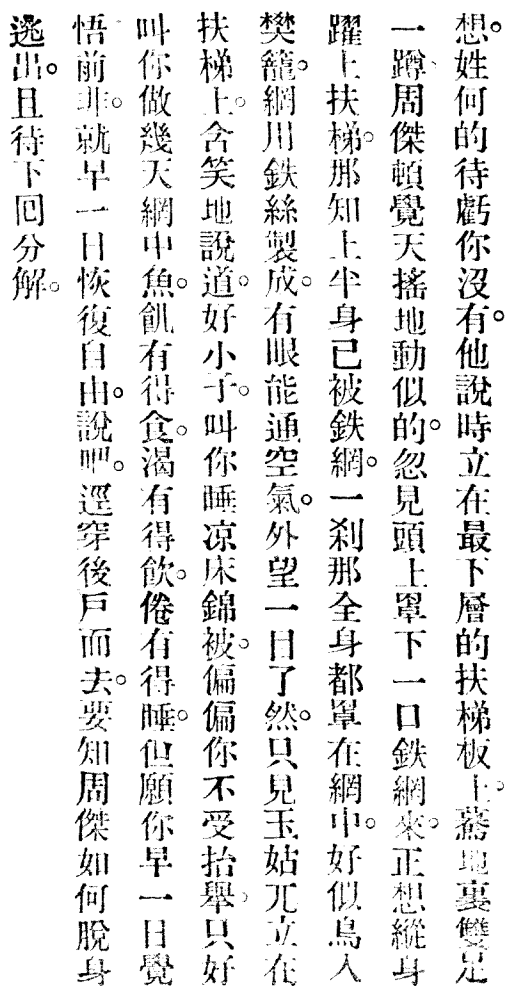 想。姓何的待虧你沒有。他說時立在最下層的扶梯板上。驀地裏雙足
一蹲、周傑頓覺天搖地動似的。忽見頭上罩下一口鉄網來。正想縱身
躍上扶梯。那知上半身已被鉄網。一刹那全身都罩在網中。好似鳥入
樊籠。網川鉄絲製成。有眼能通空氣。外望一日了然。只見玉姑兀立在
扶梯上。含笑地說道。好小子。叫你睡凉床錦被。偏偏你不受抬舉。只好
叫你做幾天網中魚。飢有得食。渴有得飲。倦有得睡。但願你早一日覺
悟前非。就早一日恢復自由。說吧。逕穿後戶而去。要知周傑如何脫身
逃出。且待下回分解。